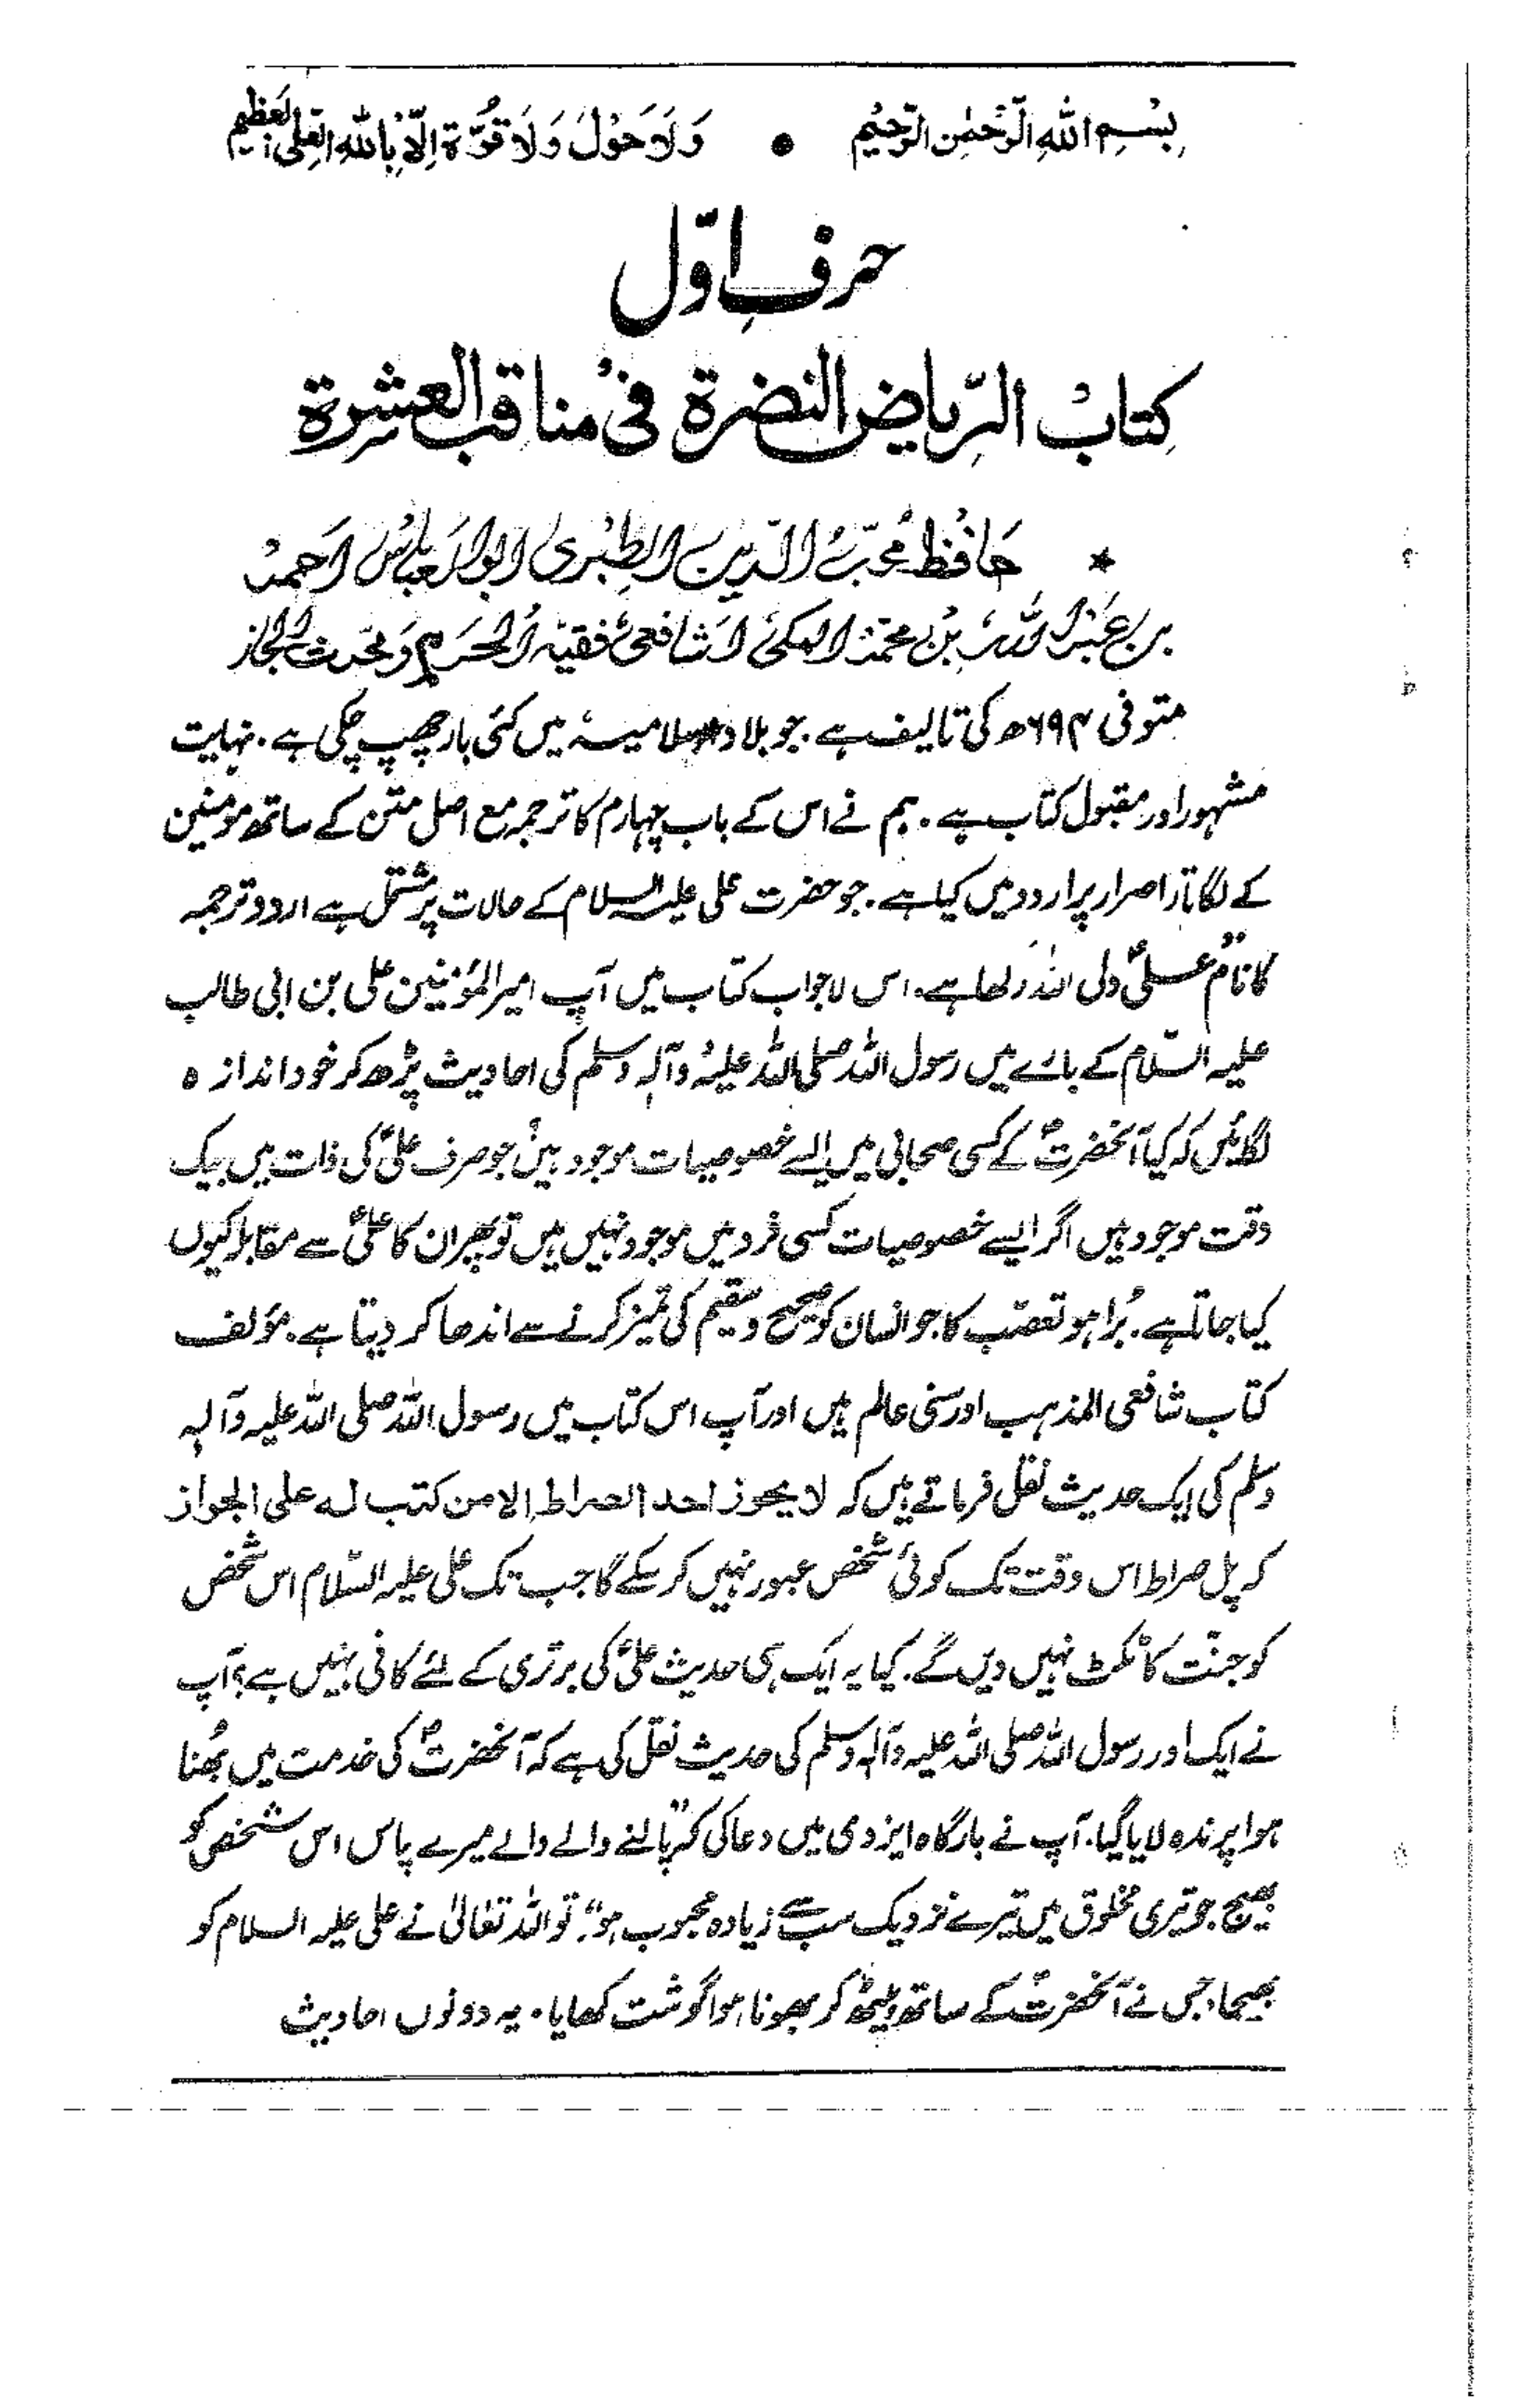 بِسْمِ اللهِ الرَّحْمٰنِ الرَّحِيْمِ ● وَلَا حَوْلَ وَلَا قُوَّةَ اِلَّا بِاللهِ الْعَلِیِّ الْعَظِیْمِ
حرفِ اوّل
کتابُ الرّیاض النضرۃ فی مناقب العشرۃ
★ حافظ محبّ الدین الطبری ابو العباس احمد
بن عبد اللہ بن محمد المکی الشافعی فقیہ الحرم و محدث الحجاز
متوفی ۶۹۴ھ کی تالیف ہے۔ جو بلاد اسلامیہ میں کئی بار چھپ چکی ہے۔ نہایت
مشہور اور مقبول کتاب ہے۔ ہم نے اس کے باب چہارم کا ترجمہ مع اصل متن کے ساتھ مومنین
کے لگاتار اصرار پر اردو میں کیا ہے۔ جو حضرت علی علیہ السلام کے حالات پر مشتمل ہے اردو ترجمہ
کا نام "علیؑ ولی اللہ" رکھا ہے۔ اس لاجواب کتاب میں آپ امیر المؤمنین علی بن ابی طالب
علیہ السّلام کے بارے میں رسول اللہ صلی اللہ علیہ وآلہ وسلم کی احادیث پڑھ کر خود اندازہ
لگائیں کہ کیا آنحضرتؐ کے کسی صحابی میں ایسے خصوصیات موجود ہیں جو صرف علیؑ کی ذات میں بیک
وقت موجود ہیں اگر ایسے خصوصیات کسی فرد میں موجود نہیں ہیں تو پھر ان کا علیؑ سے مقابلہ کیوں
کیا جاتا ہے۔ بُرا ہو تعصّب کا جو انسان کو صحیح و سقیم کی تمیز کرنے سے اندھا کر دیتا ہے۔ مؤلف
کتاب شافعی المذہب اور سنی عالم ہیں اور آپ اس کتاب میں رسول اللہ صلی اللہ علیہ وآلہ
وسلم کی ایک حدیث نقل فرماتے ہیں کہ لا یجوز احد الصراط الا من کتب له علی الجواز
کہ پل صراط اس وقت تک کوئی شخص عبور نہیں کر سکے گا جب تک علی علیہ السّلام اس شخص
کو جنّت کا ٹکٹ نہیں دیں گے۔ کیا یہ ایک ہی حدیث علیؑ کی برتری کے لئے کافی نہیں ہے؟ آپ
نے ایک اور رسول اللہ صلی اللہ علیہ وآلہ وسلم کی حدیث نقل کی ہے کہ آنحضرتؐ کی خدمت میں بُھنا
ہوا پرندہ لایا گیا۔ آپ نے بارگاہ ایزدی میں دعا کی کہ "پالنے والے والے میرے پاس اس شخص کو
بھیج جو تیری مخلوق میں تیرے نزدیک سب سے زیادہ محبوب ہو"۔ تو اللہ تعالیٰ نے علی علیہ السلام کو
بھیجا، جس نے آنحضرتؐ کے ساتھ بیٹھ کر بھونا ہوا گوشت کھایا۔ یہ دونوں احادیث